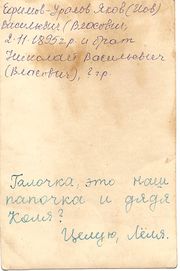 Ефимов-Уралов Яков (Иов)
Васильевич (Власович,
2.11.1895 г.р. и брат
Николай Васильевич
(Власович), 2 г.р.
Галочка, это наш
папочка и дядя
Коля?
Целую, Лёля.